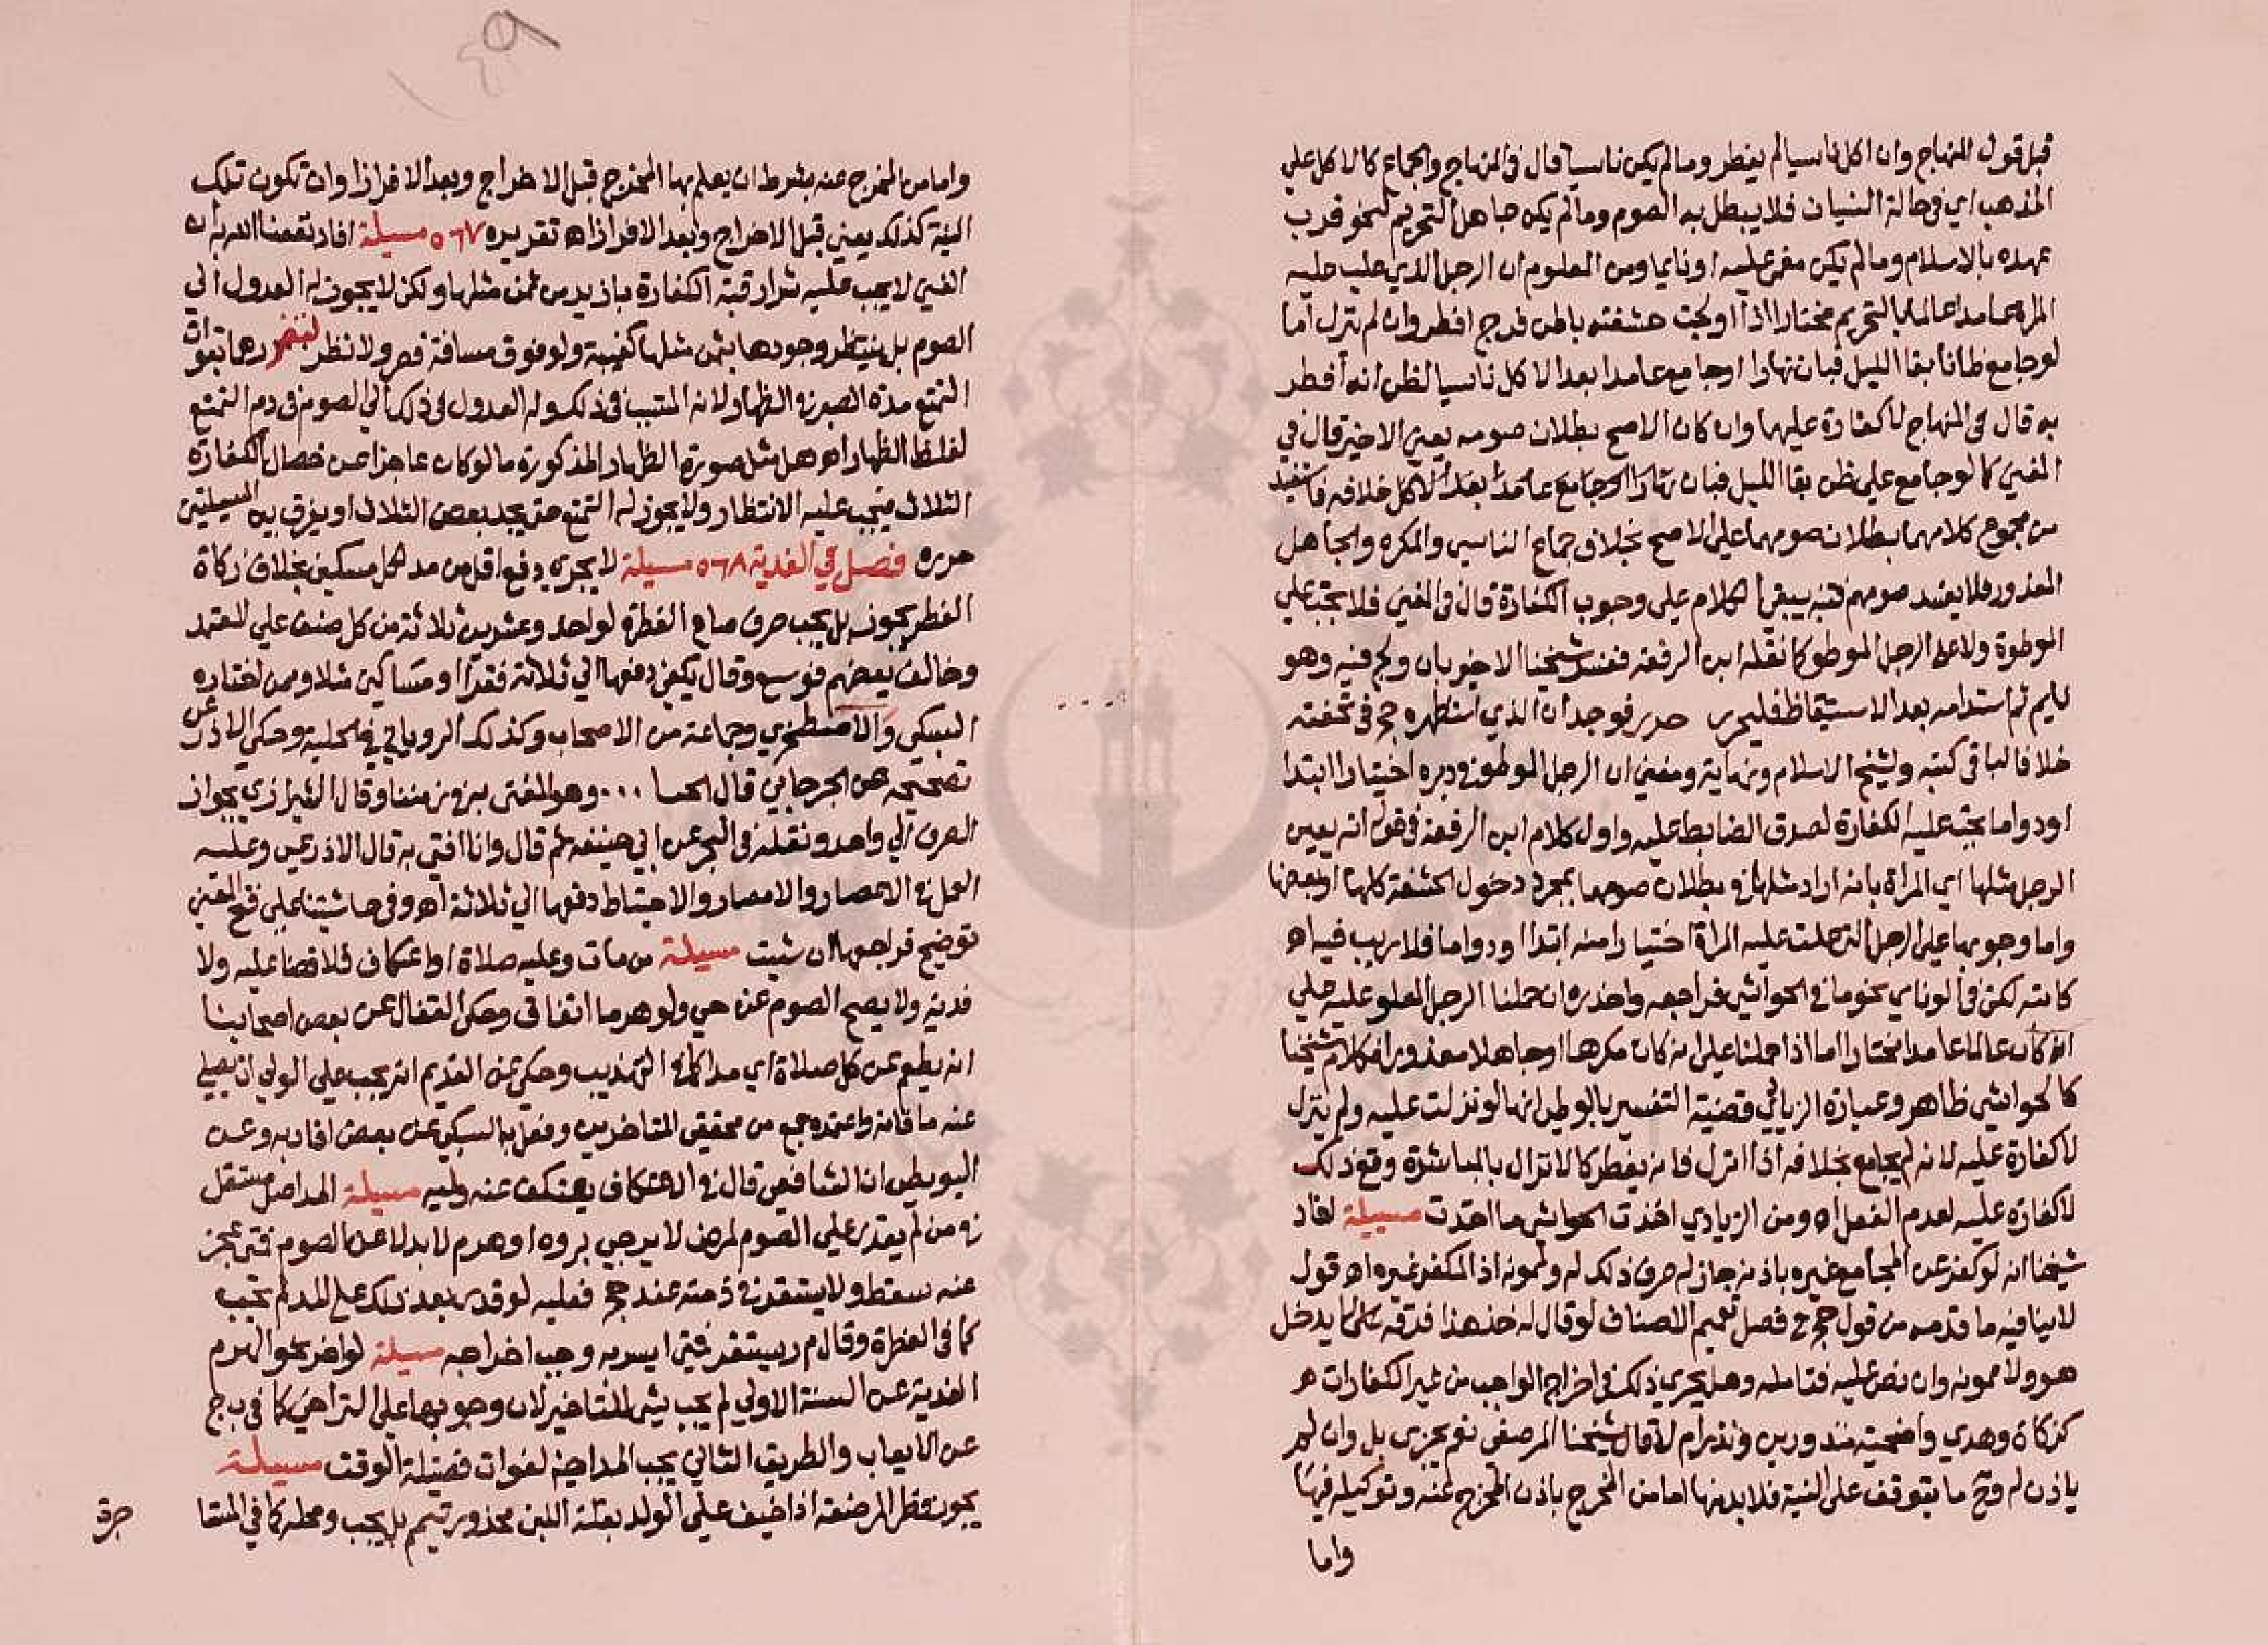 قبل قول المنهاج وان اكل ناسيا لم يفطر وما لم يكن ناسيا قال في المنهاج والجماع كالاكل علي
المذهب اي في حالة النسيان فلا يبطل به الصوم وما لم يكن جاهل التحريم لنحو قرب
عهده بالاسلام وما لم يكن مغمي عليه او نايما ومن المعلوم ان الرجل الذي
المراة عامدا عالما بالتحريم مختارا اذا اولجت حشفته باطن فرج افطر وان لم ينزل اما
لو جامع ظانا بقا الليل فبان نهارا او جامع عامدا بعد الاكل ناسيا لظن انه افطر
به قال في المنهاج لا كفارة عليهما وان كان الاصح بطلان صومه يعني الاخير قال في
المغني كما لو جامع علي ظن بقا الليل فبان نهارا او جامع عامدا بعد الاكل خلافه فاستفيد
من مجموع كلامهما بطلان صومهما علي الاصح بخلاف جماع الناسي والمكره والجاهل
المعذور فلا يفسد صومهم فيبقي الكلام علي وجوب الكفارة قال في المغني فلا يجب علي
الموطوة ولا علي الرجل الموطو كما نقله ابن الرفعة شيخنا وهو
نايم ثم استدامه بعد الاستيقاظ فليحرر حرر فوجد ان الذي استظهره حج في تحفته
خلافا لما في كتبه ولشيخ الاسلام ونهاية ومغني ان الرجل الموطو في دبره اختيارا ابتدا
او دواما يجب عليه الكفارة لصدق الضابط عليه واول كلام ابن الرفعة في قوله انه يعين
الرجل مثلها اي المراة بانه اراد مثلها في بطلان صومها بمجرد دخول الحشفة كلها او بعضها
واما وجوبها علي الرجل التي علت عليه المراة اختيارا منه ابتدا او دواما فلا ريب فيه اه
كاتبه لكن في الونايي نحو ما في الحواشي فراجعه واحذره ان حملنا الرجل المعلو عليه علي
انه كان عالما عامدا مختارا اما اذا حملنا علي انه كان مكرها او جاهلا معذورا فكلام شيخنا
كالحواشي ظاهر وعبارة الزيادي قضية التفسير بالوطي انها لو نزلت عليه ولم ينزل
لا كفارة عليه لانه لم يجامع بخلافه اذا انزل فانه يفطر كالانزال بالمباشرة ومع ذلك
لا كفارة عليه لعدم الفعل اه ومن الزيادي اخذت الحواشي ما اخذت مسيلة افاد
شيخنا انه لو كفر عن المجامع غيره باذنه جاز له صرف ذلك له ولممونه اذ المكفر غيره اه قول
لا ينافيه ما قدمه من قول حج ح فصل تعميم الاصناف لو قال له خذ هذا فرقه علي لا يدخل
هو ولا ممونه وان نص عليه فتامله وهل يجري ذلك في اخراج الواجب من غير الكفارات
كزكاة وهدي واضحية منذورين ونذر ام لا قال شيخنا المرصفي نعم يجزي بل وان لم
ياذن له وح ما يتوقف علي النية فلا بد منها اما من المخرج باذن المخرج عنه وتوكيله فيها
واما
واما من المخرج عنه بشرط ان يعلم بها المخرج قبل الاخراج وبعد الافراز او ان تكون تلك
النية كذلك يعني قبل الاخراج وبعد الافراز اه تقريره ٥٦٧ مسيلة افاد نفعنا الله به ان
الغني لا يجب عليه شرا رقبة الكفارة بازيد من ثمن مثلها ولكن لا يجوز له العدول الي
الصوم بل ينتظر وجودها بثمن مثلها كغيبة ولو فوق مسافة قصر ولا نظر لتضررهما بفوات
التمتع مدة الصبر في الظهار لانه المتسبب في ذلك وله العدول في ذلك الي الصوم في دم التمتع
لغلظ الظهار اه هل مثل صورة الظهار المذكورة ما لو كان عاجزا عن خصال الكفارة
الثلاث فيجب عليه الانتظار ولا يجوز له التمتع حتي يجد بعض الثلاث او يفرق بين المسيلتين
حرره فصل في الفدية ٥٦٨ مسيلة لا يجزي دفع اقل من مد لكل مسكين بخلاف زكاة
الفطر يجوز بل يجب صرف صاع الفطرة لواحد وعشرين ثلاثة من كل صنف علي المعتمد
وخالف بعضهم فوسع وقال يكفي دفعها الي ثلاثة فقرا او مساكين مثلا وممن اختاره
السبكي والاصطخري وجماعة من الاصحاب وكذلك الروياني في حليته وحكي الاذرعي
تصحيحه عن الجرجاني قال ... وهو المفتي به في زمننا وقال الشيرازي بجواز
الصرف الي واحد ونقله في البحر عن ابي حنيفة ثم قال وانا افتي به قال الاذرعي وعليه
العمل في الاعصار والامصار والاحتياط دفعها الي ثلاثة اه وفي حاشيتنا علي فتح المعين
توضيح فراجعها ان شيت مسيلة من مات وعليه صلاة او اعتكاف فلا قضا عليه ولا
فدية ولا يصح الصوم عن حي ولو هرما اتفاقا وحكي القفال عن بعض اصحابنا
انه يطعم عن كل صلاة اي مدا كما في التهذيب وحكي عن القديم انه يجب علي الولي ان يصلي
عنه ما فاته واعتمده جمع من محققي المتاخرين وفعل به السبكي عن بعض اقاربه وعن
البويطي ان الشافعي قال في الاعتكاف يعتكف عنه وليه مسيلة المد اصل مستقل
في من لم يقدر علي الصوم لمرض لا يرجي بروه او هرم لا بدلا عن الصوم فمتي عجز
عنه سقط ولا يستقر في ذمته عند حج فعليه لو قدر بعد ذلك علي المد لم يجب
كما في الفطرة وقال م ر يستقر فمتي ايسر به وجب اخراجه مسيلة لو اخر نحو الهرم
الفدية عن السنة الاولي لم يجب شي للتاخير لان وجوبها علي التراخي كما في ب ج
عن الايعاب والطريق الثاني يجب المد ايضا لفوات فضيلة الوقت مسيلة
يجوز فطر المرضعة اذا خيف علي الولد بقلة اللبن محذور تيمم بل يجب ومحله كما في